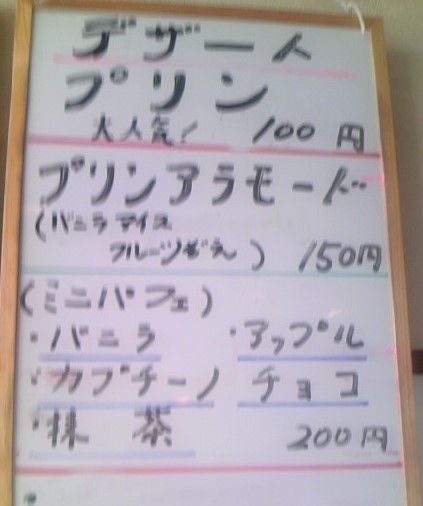 デザート
プリン
大人気! 100円
プリンアラモード
(バニラアイス
フルーツぞえ) 150円
(ミニパフェ)
・バニラ ・アップル
・カプチーノ チョコ
・抹茶 200円